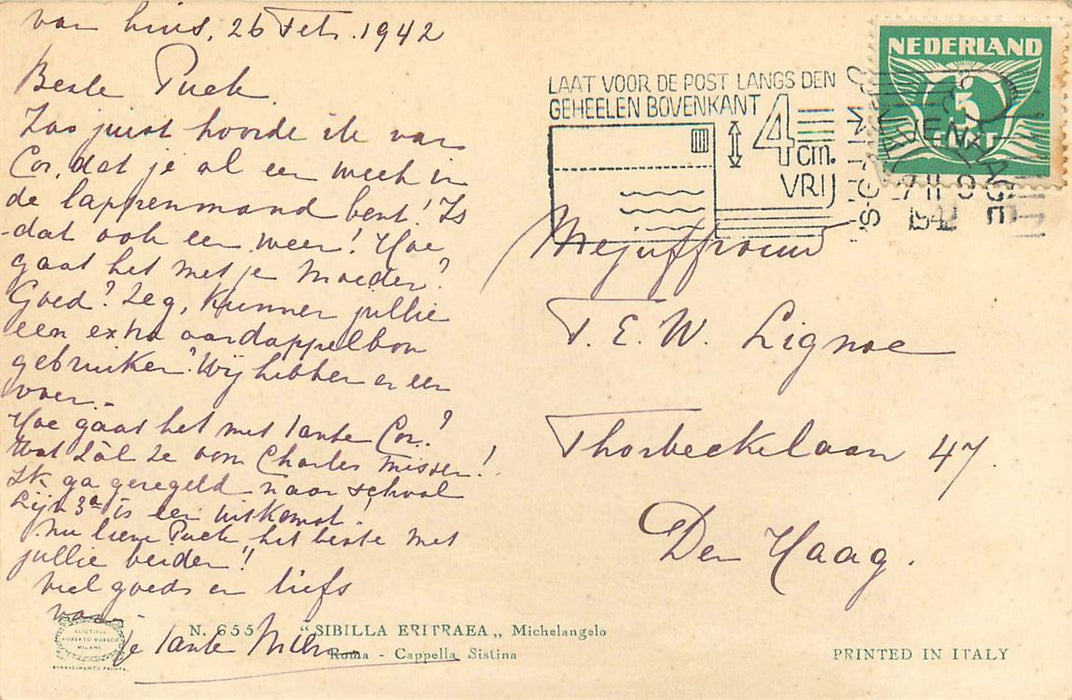 van huis, 26 Feb. 1942
Beste Puck.
Zoo juist hoorde ik van
Cor, dat je al een week in
de lappenmand bent! Is
dat ook een weer! Hoe
gaat het met je Moeder?
Goed? Zeg, kunnen jullie
een extra aardappelbon
gebruiken? Wij hebben er een
voor.
Hoe gaat het met tante Cor?
Wat zàl ze oom Charles missen!
Ik ga geregeld naar school
Lijn 3a is een uitkomst!
Nu lieve Puck het beste met
jullie beiden!
Veel goeds en liefs
van
je tante
LAAT VOOR DE POST LANGS DEN
GEHEELEN BOVENKANT
4
cm.
VRIJ
NEDERLAND
5
CENT
'S GRAVENHAGE
1942
Mejuffrouw
T. E. W. Lignac
Thorbeckelaan 47
Den Haag.
N. 655 "SIBILLA ERITRAEA„ Michelangelo
Roma - Cappella Sistina
PRINTED IN ITALY
MILANO